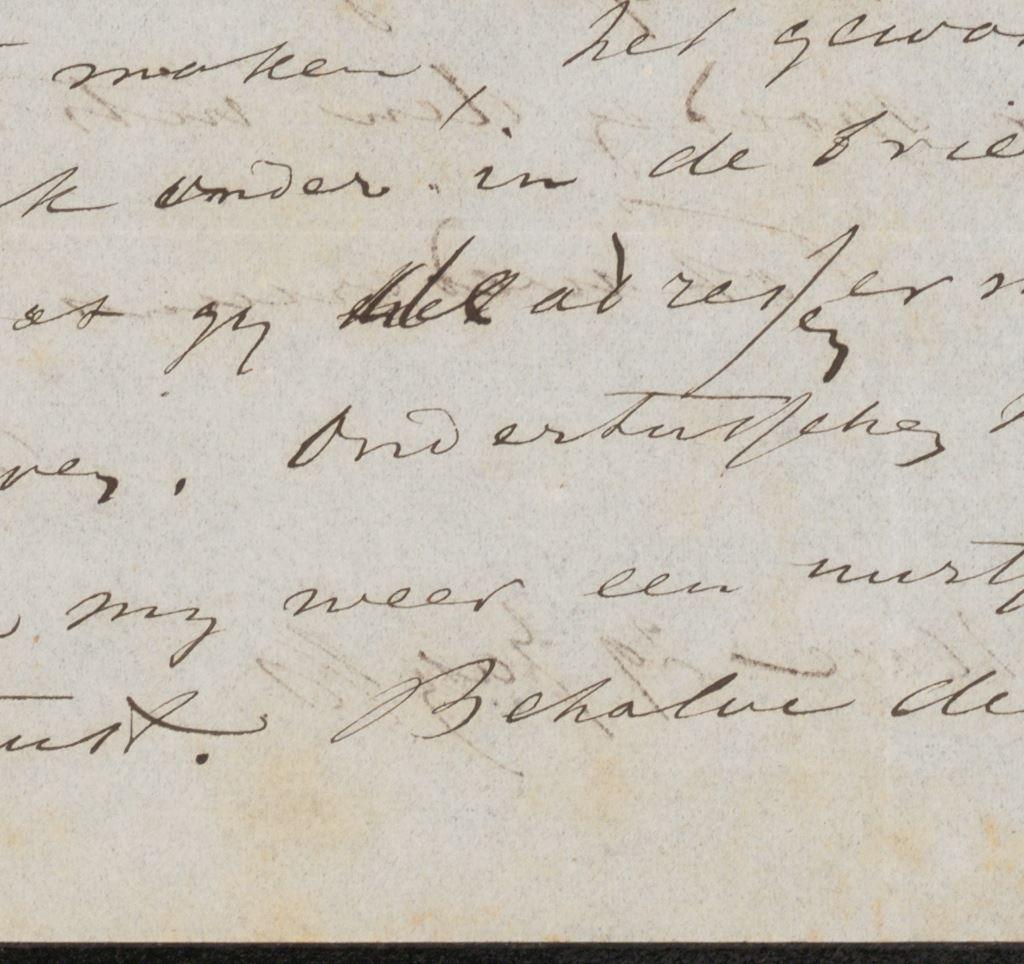 maken, het gewo
k onder in de brie
at gy het adresser
ven. Ondertusschen
my weer een
rust. Behalve de